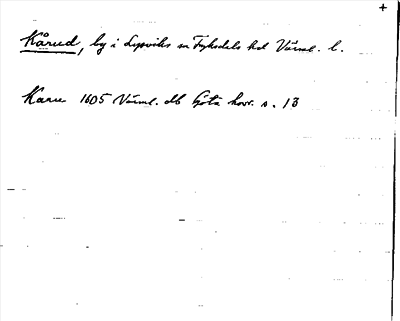 +
Kårud, by i Lysviks sn Fryksdals hd Värml. l.
Karu 1605 Värml. db Göta hovr. s. 13